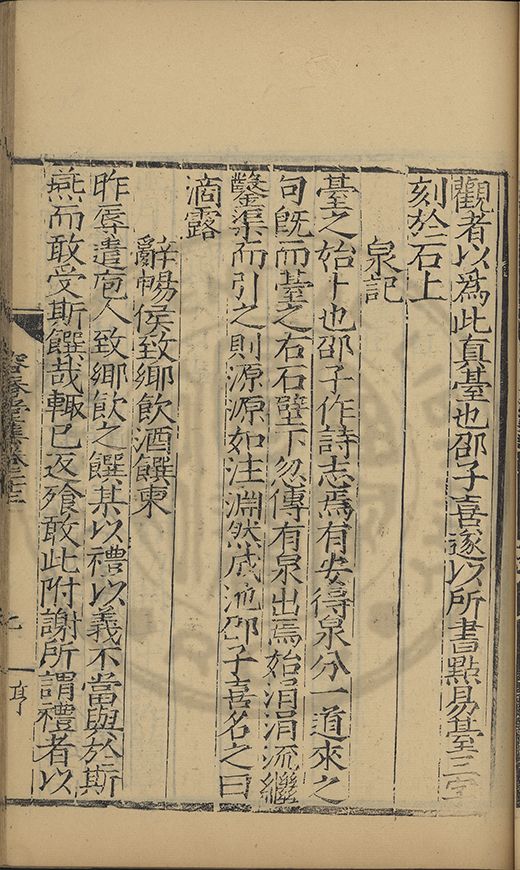 觀者以為此真臺也邵子喜遂以所書點易臺三字
刻於石上
泉記
臺之始卜也邵子作詩志焉有安得泉分一道來之
句既而臺之右石壁下忽傳有泉出焉始涓涓流繼
鑿渠而引之則源源如注淵然成池邵子喜名之曰
滴露
辭暢侯致鄉飲酒饌柬
昨辱遣庖人致鄉飲之饌其以禮以義不當與於斯
燕而敢受斯饌哉輙已返飱敢此附謝所謂禮者以
容春
亨